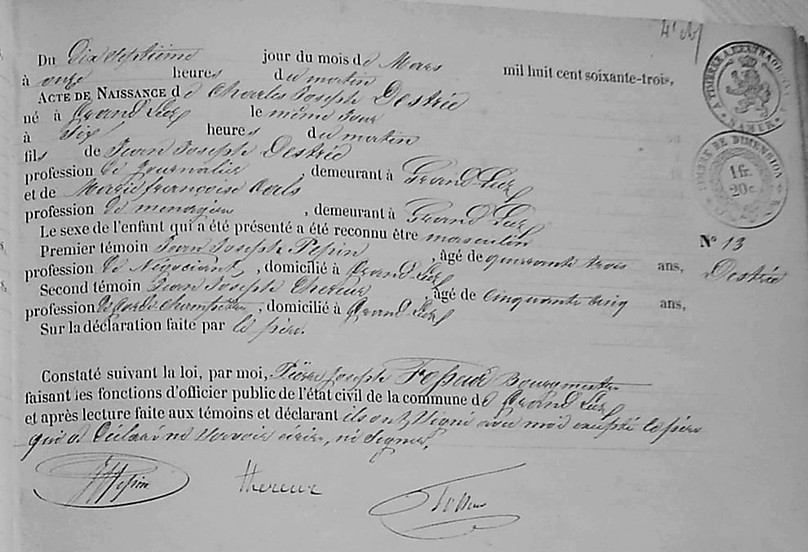 Du Dix Septième jour du mois de Mars mil huit cent soixante-trois,
à onze heures du matin
ACTE DE NAISSANCE de Charles Joseph Destrée
né à Grand Leez le même jour
à Six heures du matin
fils de Jean Joseph Destrée
profession de journalier, demeurant à Grand Leez
et de Marie françoise
profession de menagère, demeurant à Grand Leez
Le sexe de l'enfant qui a été présenté a été reconnu être masculin
Premier témoin Jean Joseph Pepin, âgé de quarante trois ans,
profession de Négociant, domicilié à Grand Leez
Second témoin Jean Joseph Thereur, âgé de cinquante cinq ans,
profession de Garde Champêtre, domicilié à Grand Leez
Sur la déclaration faite par le père.
Constaté suivant la loi, par moi, Pierre Joseph Bourgmestre
faisant les fonctions d'officier public de l'état civil de la commune de Grand Leez
et après lecture faite aux témoins et déclarant ils ont signé avec moi excepté le père
qui a déclaré ne savoir écrire, ni signer.
Pepin Thereur
N° 13
Destrée
TIMBRE DE DIMENSION
1 fr.
20 c.